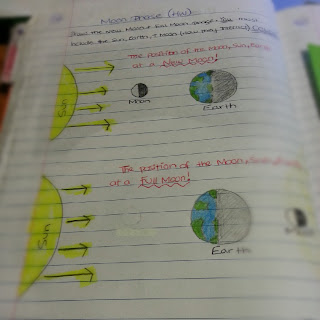 Moon Phase (HW)
Draw the New Moon + Full Moon You must
include the Sun, Earth, + Moon (how they interact)
The position of the Moon, Sun,
at a New Moon!
Sun
Moon
Earth
The position of the Moon, Sun,
at a Full Moon!
Sun
Earth
Moon